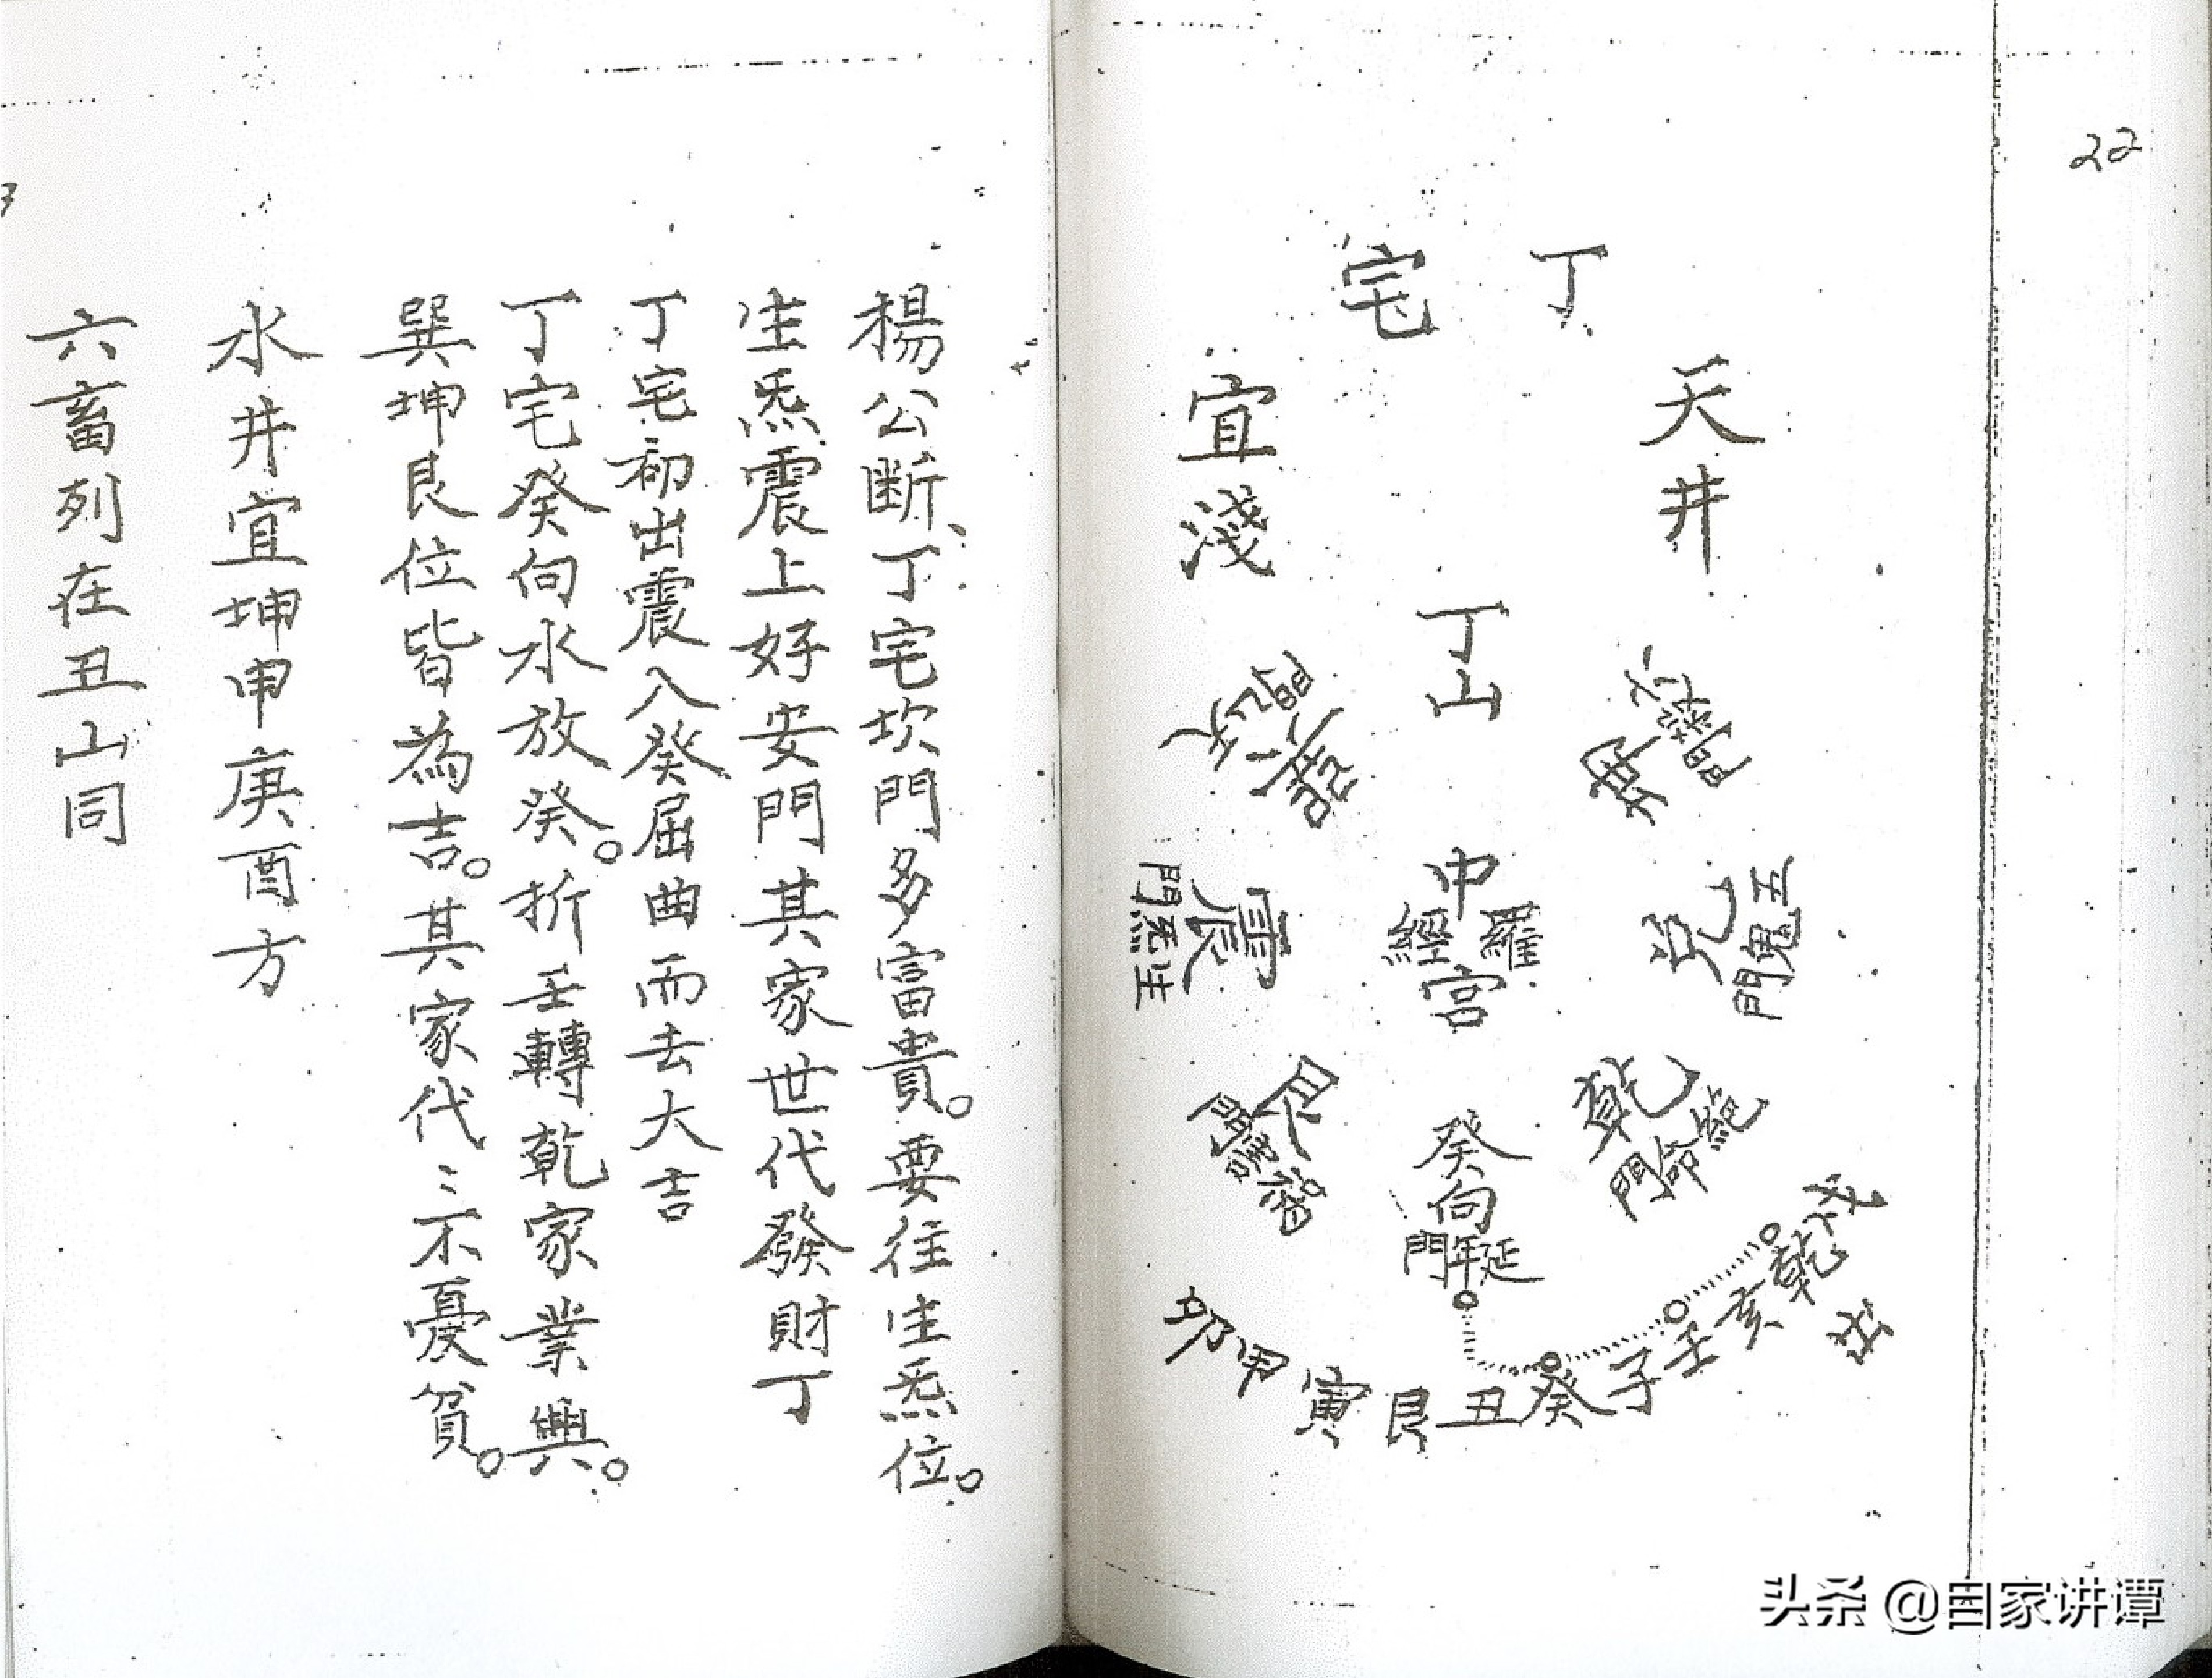 22
丁宅
天井
宜淺
丁山
六殺門
坤
五鬼門
兌
絕命門
乾
癸向
延年門
艮
禍害門
震
生炁門
巽
天醫門
中宮
羅經
戌乾亥壬子癸丑艮寅甲卯
出
楊公断、丁宅坎門多富貴。要往生炁位。
生炁震上好安門其家世代發財丁
丁宅初出震入癸屈曲而去大吉
丁宅癸向水放癸。折壬轉乾家業興。
巽坤艮位皆為吉。其家代〻不憂貧。
水井宜坤申庚酉方
六畜列在丑山同
头杀 @自家讲谭